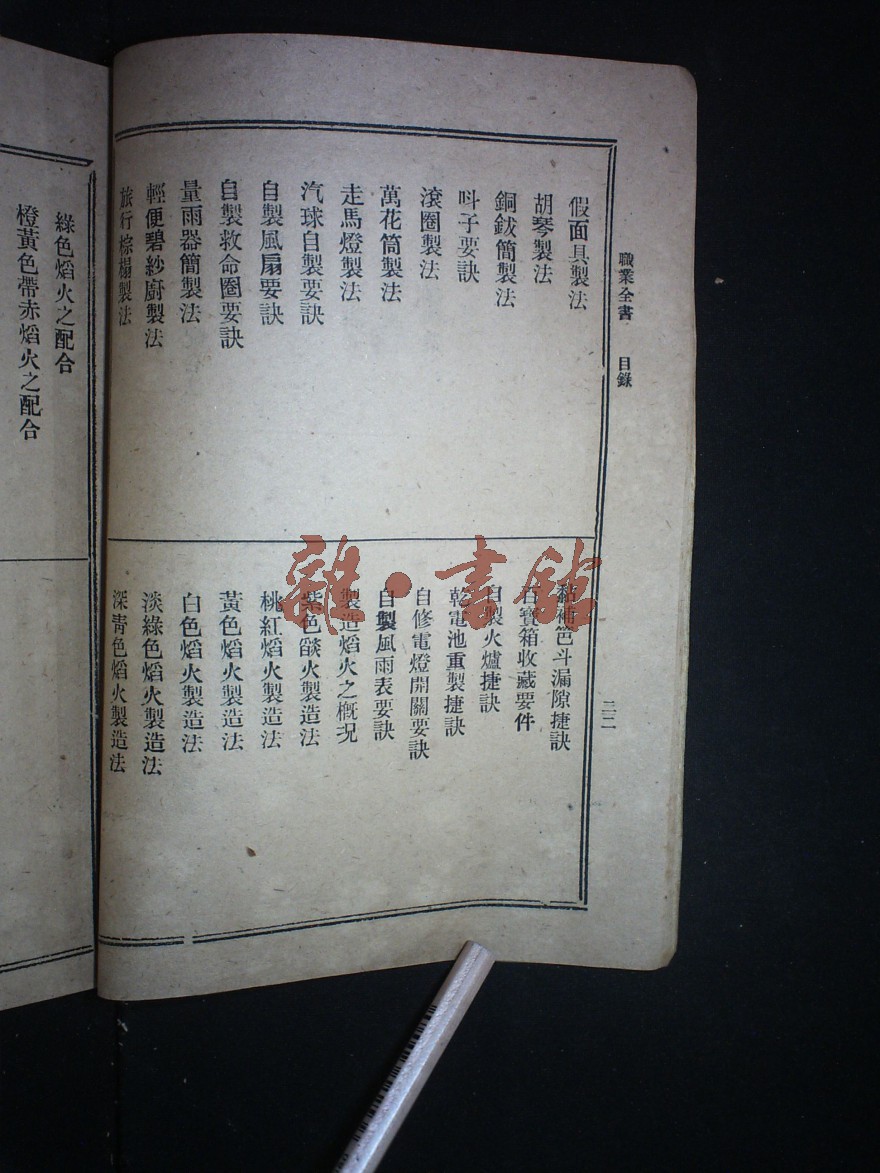 職業全書 目錄
二二
假面具製法
胡琴製法
銅鈸簡製法
呌子要訣
滾圈製法
萬花筒製法
走馬燈製法
汽球自製要訣
自製風扇要訣
自製救命圈要訣
量雨器簡製法
輕便碧紗廚製法
旅行棕榻製法
黏補笆斗漏隙捷訣
百寶箱收藏要件
自製火爐捷訣
乾電池重製捷訣
自修電燈開關要訣
自製風雨表要訣
製造焰火之概況
紫色燄火製造法
桃紅焰火製造法
黃色焰火製造法
白色焰火製造法
淡綠色焰火製造法
深靑色焰火製造法
綠色焰火之配合
橙黃色帶赤焰火之配合
雜·書館